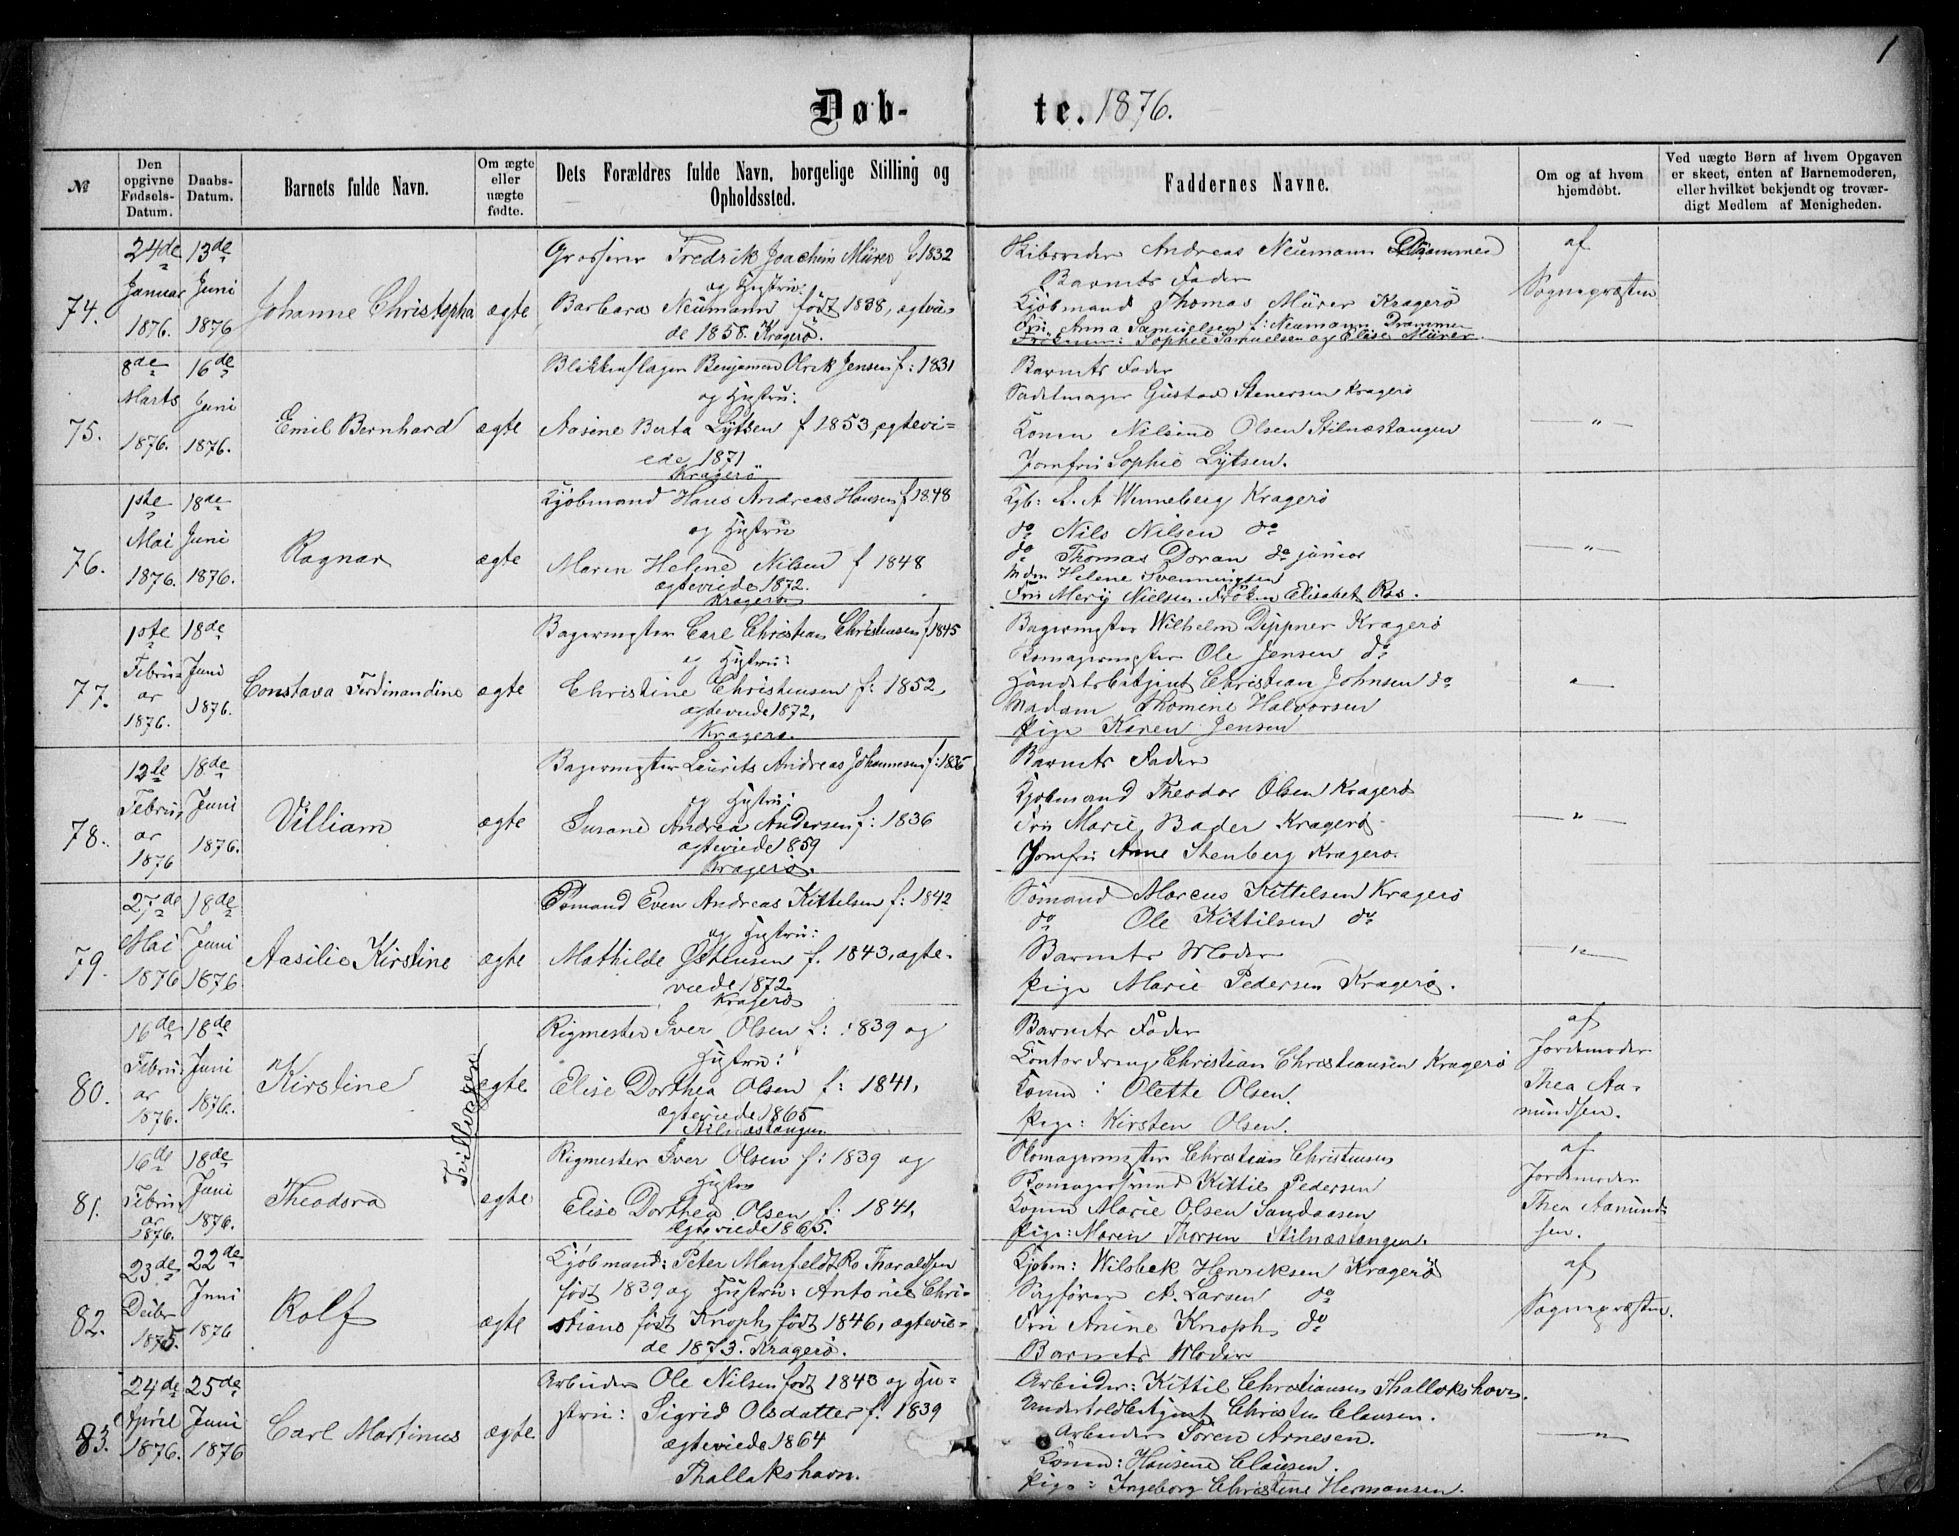 1
Døb-te. 1876.
№
Den opgivne Fødsels-Datum.
Daabs-Datum.
Barnets fulde Navn.
Om ægte eller uægte fødte.
Dets Forældres fulde Navn, borgelige Stilling og Opholdssted.
Faddernes Navne.
Om og af hvem hjemdøbt.
Ved uægte Børn af hvem Opgaven er skeet, enten af Barnemoderen, eller hvilket bekjendt og troværdigt Medlem af Menigheden.
74.
24de Januar 1876.
13de Juni 1876
Johanne Christopha
ægte
Grosserer Fredrik Joachim Mürer f 1832
og Hustru:
Barbara Neumann født 1838, ægtvie-
de 1858. Kragerø.
Skibsreder Andreas Neumann Drammen
Barnets Fader
Kjøbmand Thomas Mürer Kragerø
Fru Anna Samuelsen f: Neumann. Drammen
Frøknerne: Sophie Samuelsen og Elise Mürer.
af
Sognepræsten
75.
8de Marts 1876.
16de Juni 1876.
Emil Bernhard
ægte
Blikkenslager Benjamin Olrik Jensen f: 1831
og Hustru:
Aasine Berta Lytsen f 1853, ægtevi-
ede 1871
Kragerø
Barnets Fader
Sadelmager Gustav Stenersen Kragerø
Konen Nilsine Olsen Stilnæstangen
Jomfru Sophie Lytsen.
— " —
76.
1ste Mai 1876.
18de Juni 1876.
Ragnar
ægte
Kjøbmand Hans Andreas Hansen f 1848
og Hustru
Maren Helene Nilsen f 1848
ægteviede 1872.
Kragerø
Kjb: L. A Wenneberg Kragerø
do Nils Nilsen do
do Thomas Doran do junior
Mdm Helene Svenningsen
Fru Mery Nielsen. Frøken Elisabet Ros.
— " —
77.
1ste Februar 1876.
18de Juni 1876.
Constava Ferdinandine
ægte
Bagermester Carl Christian Christiansen f 1845
og Hustru:
Christine Christensen f: 1852,
ægteviede 1872,
Kragerø.
Bagermester Wilhelm Dippner Kragerø
Komagermester Ole Jensen do
Handelsbetjent Christian Johnsen do
Madam Thomine Halvorsen
Pige Karen Jensen
"—
78.
12te Februar 1876
18de Juni 1876.
Villiam
ægte
Bagermester Laurits Andreas Johannesen f: 1836
og Hustru:
Susane Andrea Andersen f: 1836
ægteviede 1859
Kragerø.
Barnets Fader
Kjøbmand Theodor Olsen Kragerø
Fru Marie Bader Kragerø
Jomfru Anne Stenberg Kragerø.
— " —
79.
27de Mai 1876
18de Juni 1876.
Aasilie Kirstine
ægte
Sømand Even Andreas Kittelsen f: 1842
og Hustru:
Mathilde Østensen f. 1843, ægte-
viede 1872
Kragerø
Sømand Marcus Kittilsen Kragerø
do Ole Kittilsen do
Barnets Moder
Pige Marie Pedersen Kragerø.
— " —
80.
16de Februar 1876.
18de Juni 1876.
Kirstine
Tvillingen
ægte
Rigmester Iver Olsen f: 1839 og
Hustru:
Elise Dorthea Olsen f: 1841,
ægteviede 1865
Stilnæstangen
Barnets Fader
Contordreng Christian Christiansen Kragerø
Konen: Olette Olsen.
Pige: Kirsten Olsen.
af
Jordemoder
Thea Aa-
mundsen.
81.
16de Februar 1876.
18de Juni 1876.
Theodora
ægte
Rigmester Iver Olsen f: 1839 og
Hustru
Elise Dorthea Olsen f: 1841,
ægteviede 1865.
Komagermester Christian Christensen
Komagersvend Kittil Pedersen
Konen Marie Olsen Sandaasen
Pige: Maren Thorsen Stilnæstangen.
af
Jordemoder
Thea Aamund-
sen.
82.
23de Decbr 1875.
22de Juni 1876
Rolf
ægte
Kjøbmand: Peter Manfeldt Ro Tharaldsen
født 1839 og Hustru: Antonie Chri-
stiane født Knoph, født 1846, ægtevie-
de 1873. Kragerø.
Kjøbm: Wilsbek Henriksen Kragerø
Sagfører A. Larsen do
Fru Anine Knoph do
Barnets Moder
af
Sognepræsten.
83.
24de April 1876.
25de Juni 1876
Carl Martinus
ægte
Arbeider Ole Nilsen født 1843 og Hu-
stru: Sigrid Olsdatter f. 1839
ægteviede 1864
Thallakshavn.
Arbeider: Kittil Christiansen Thallakshavn.
Underholdbetjent Christen Clausen.
Arbeider Søren Arnesen.
Konen: Hansine Clausen.
Pige: Ingeborg Christine Hermansen.
— " —